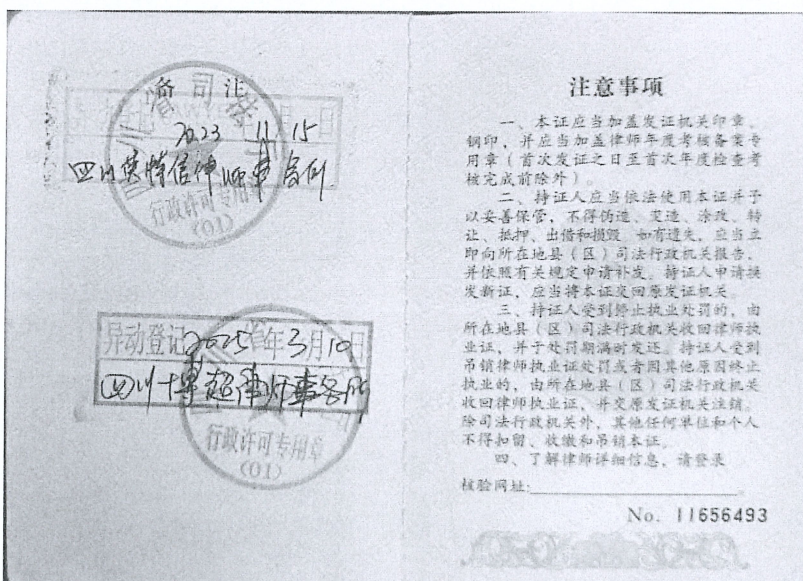 备 注
2023 11 15
四川英特信律师事务所
行政许可专用章
(01)
异动登记2025年3月10日
四川卓超律师事务所
行政许可专用章
(01)
注意事项
一、本证应当加盖发证机关印章、
钢印，并应当加盖律师年度考核备案专
用章（首次发证之日至首次年度检查考
核完成前除外）。
二、持证人应当依法使用本证并予
以妥善保管，不得伪造、变造、涂改、转
让、抵押、出借和损毁。如有遗失，应当立
即向所在地县（区）司法行政机关报告，
并依照有关规定申请补发。持证人申请换
发新证，应当将本证交回原发证机关。
三、持证人受到停止执业处罚的，由
所在地县（区）司法行政机关收回律师执
业证，并于处罚期满时发还。持证人受到
吊销律师执业证处罚或者因其他原因终止
执业的，由所在地县（区）司法行政机关
收回律师执业证，并交原发证机关注销。
除司法行政机关外，其他任何单位和个人
不得扣留、收缴和吊销本证。
四、了解律师详细信息，请登录
核验网址:
No. 11656493